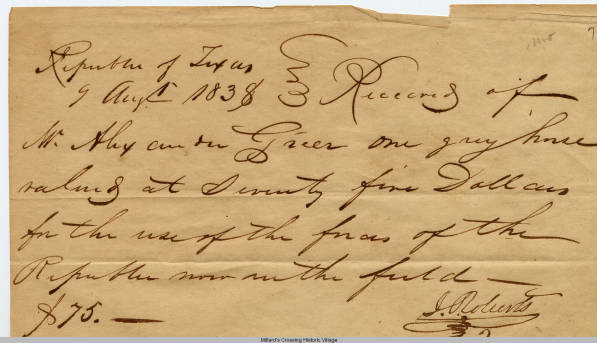 Republic of Texas
9 Augt 1838 Received of
Mr Alexander Greer one grey horse
valued at Seventy five Dollars
for the use of the forces of the
Republic now in the field —
$75. — J. Roberts
Millard's Crossing Historic Village